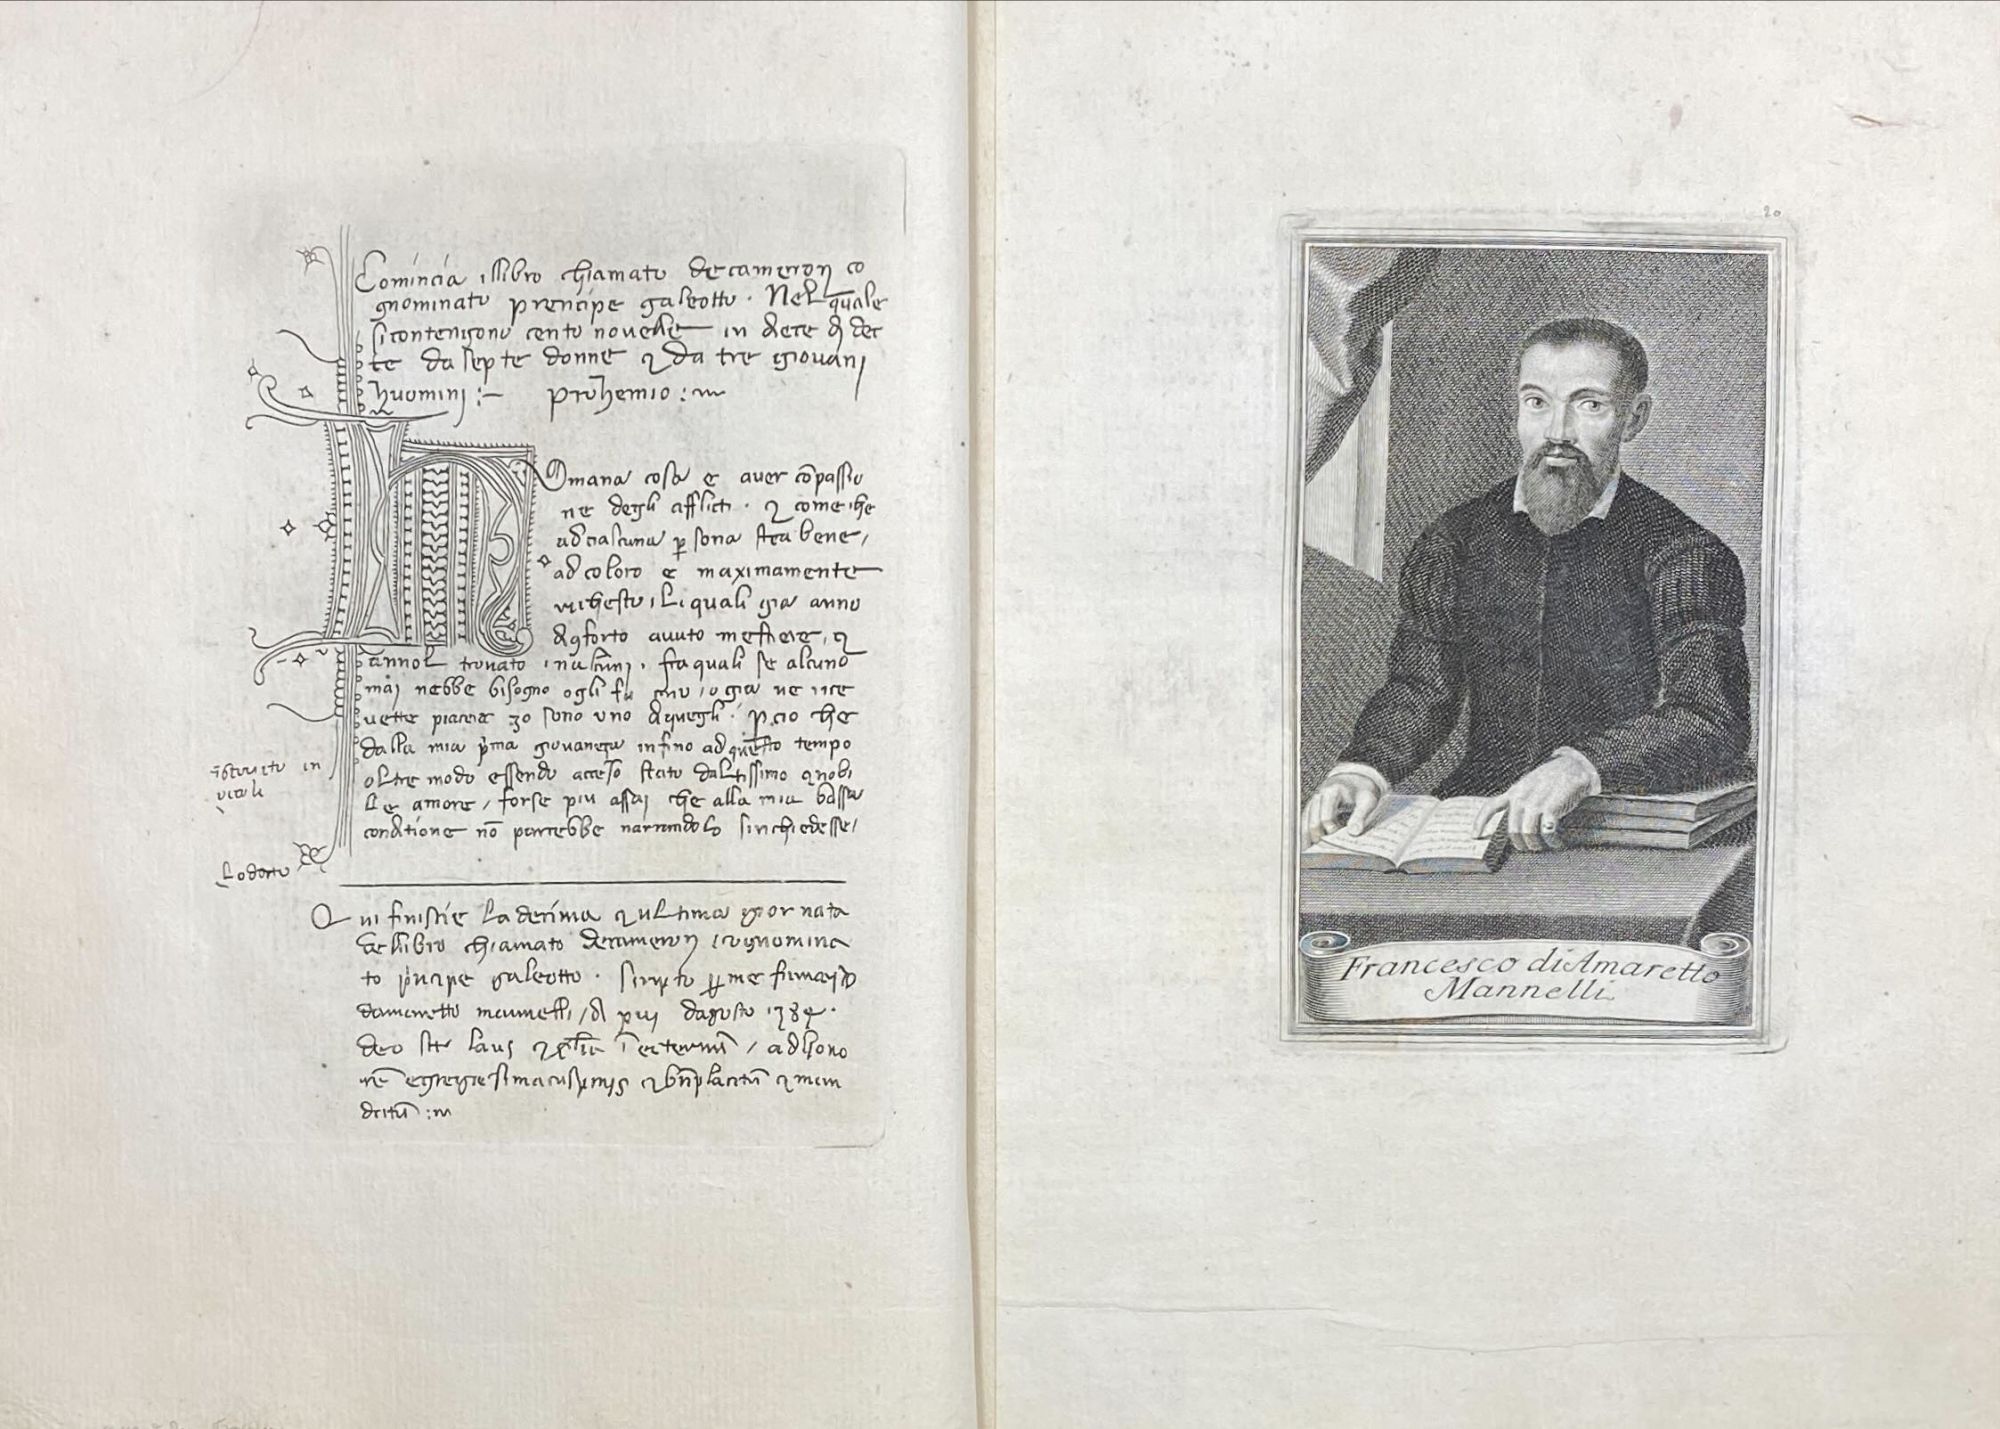 Comincia illibro chiamato decameron co
gnominato prencipe galeotto . Nel quale
si contengono cento novelle in diece dì dec
te da septe donne 7 da tre giovani
huomini :— prohemio :m
H
Umana cosa e aver cōpassio
ne degli afflicti . 7 come che
ad ciascuna p̱sona stea bene /
ad coloro e maximamente
richesto / Li quali gia anno
di ꝯforto avuto mestiere , 7
annol trovato inalcuni . fra quali se alcuno
mai nebbe bisogno o gli fu caro / o gia ne rice
vette piacere io sono uno di quegli . ꝑcio che
dalla mia pͥma giovaneça infino ad questo tempo
oltre modo essendo acceso stato daltissimo 7 nobi
le amore / forse piu assai che alla mia bassa
conditione nō parrebbe narrandolo sinchiedesse /
in
Lodotto
Qui finiscie La decima 7 ultima giornata
dellibro chiamato decameron / cognomina
to pͥncipe galeotto . scripto ꝑ me francͦ
damaretto mannelli / dì xvj dagosto 1384 .
deo sit laus 7 gl̄ia ī eternū / ad hono
rē egregie 7 bn̄placitū 7 man
datū :m
20
Francesco di Amaretto
Mannelli